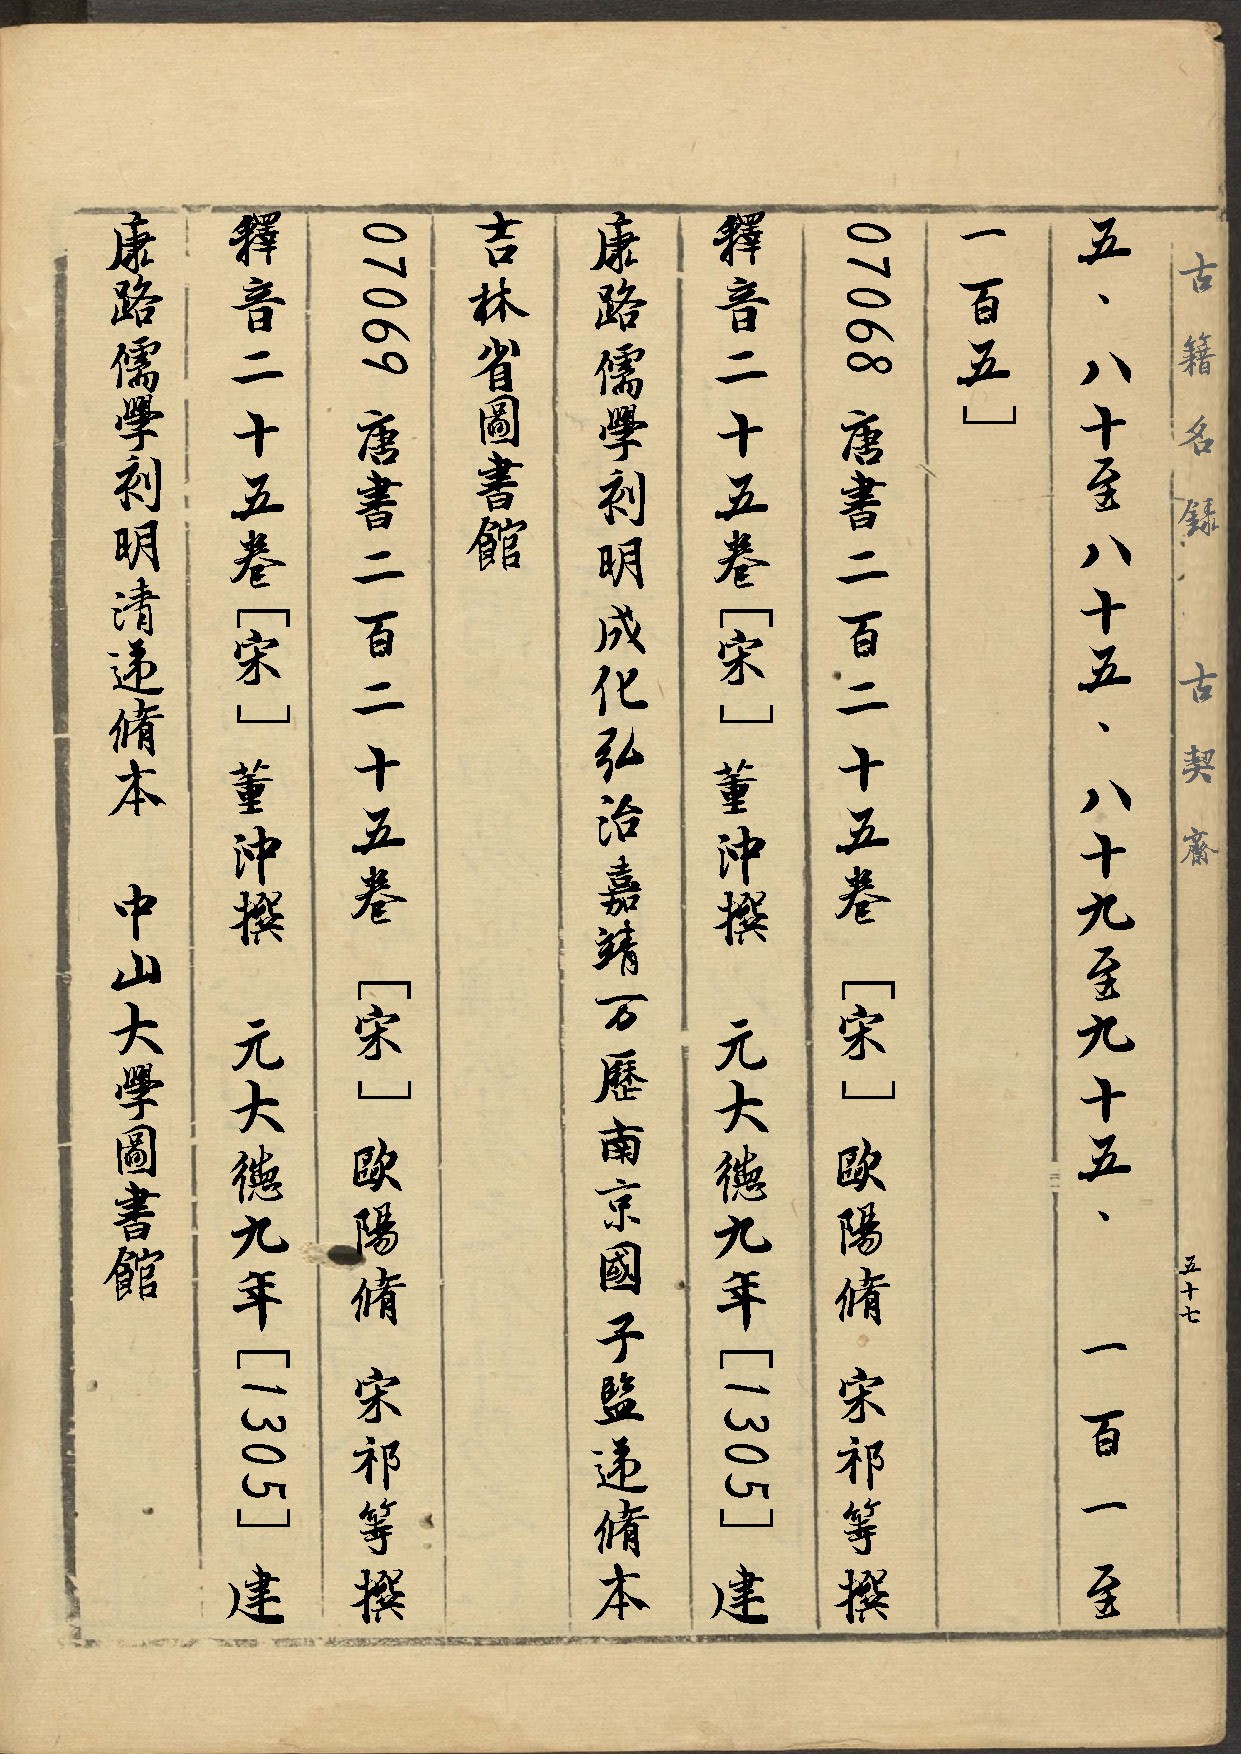 古籍名録 古契齋
五十七
五、八十至八十五、八十九至九十五、 一百一至
一百五]
07068 唐書二百二十五卷 [宋] 歐陽脩 宋祁等撰
釋音二十五卷[宋] 董沖撰 元大德九年[1305] 建
康路儒學刻明成化弘治嘉靖万歷南京國子監递脩本
吉林省圖書館
07069 唐書二百二十五卷 [宋] 歐陽脩 宋祁等撰
釋音二十五卷[宋] 董沖撰 元大德九年[1305] 建
康路儒學刻明清递脩本 中山大學圖書館